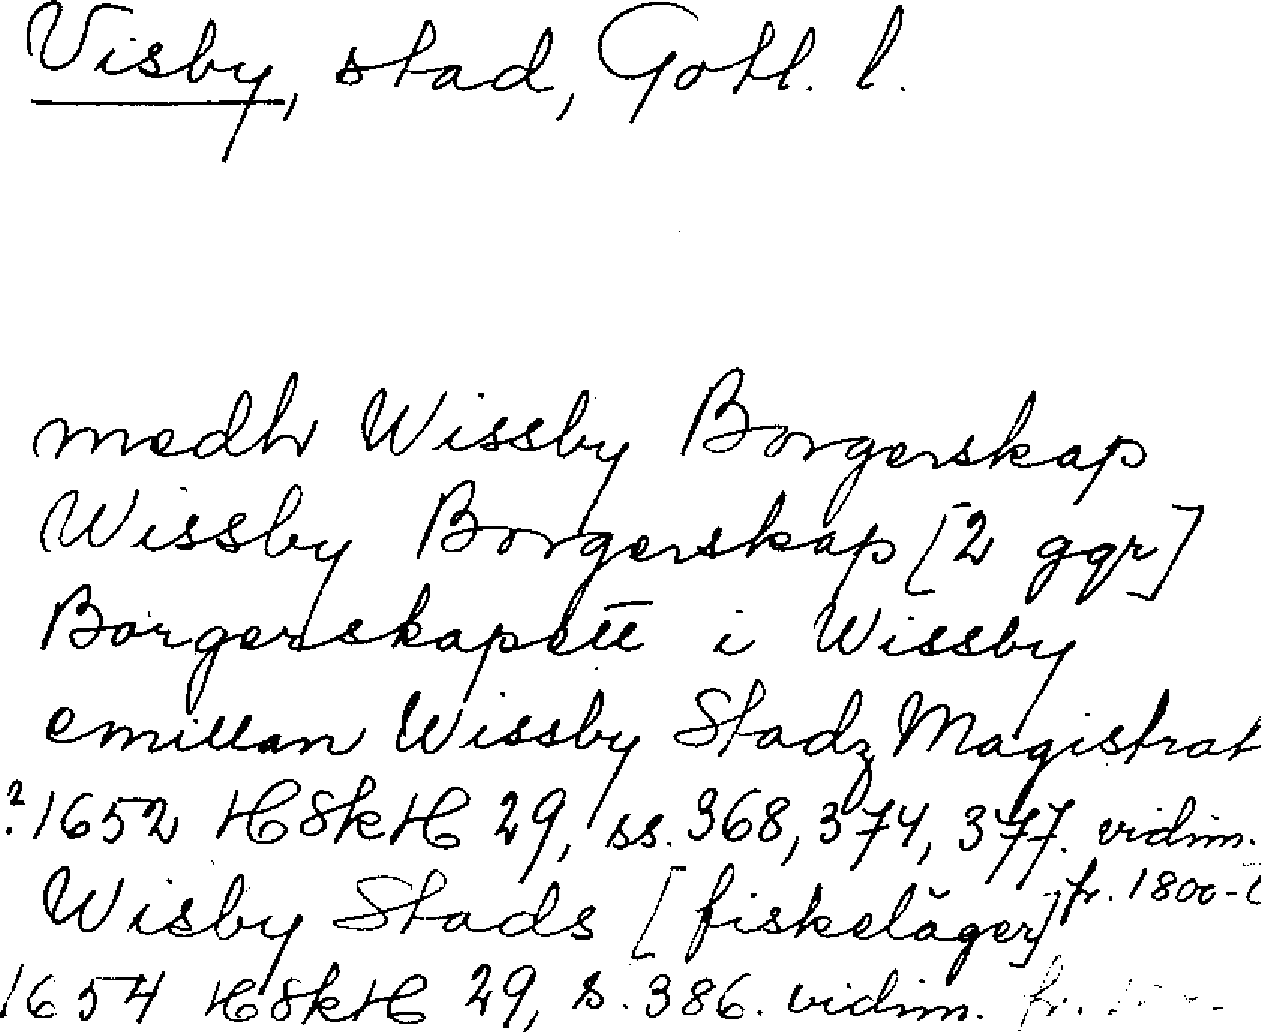 Visby, stad, Gotl. l.
medh Wissby Borgerskap
Wissby Borgerskap [2 ggr]
Borgerskapett i Wissby
emillan Wissby Stadz Magistrat
?1652 HSkH 29, ss. 368, 374, 377. vidim.
fr. 1800-t
Wisby Stads [fiskeläger]
1654 HSkH 29, s. 386. vidim. fr.